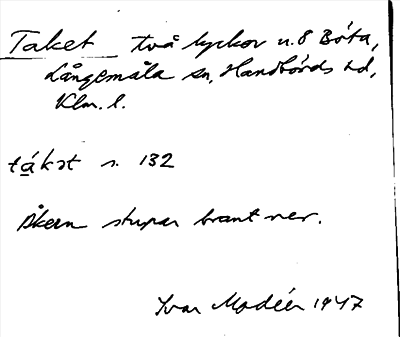 Taket två lyckor u. 8 Bóta,
Långemåla sn, Handbörds hd,
Klm. l.
tákət s. 132
Åkern stupar brant ner.
Ivar Modéer 1947